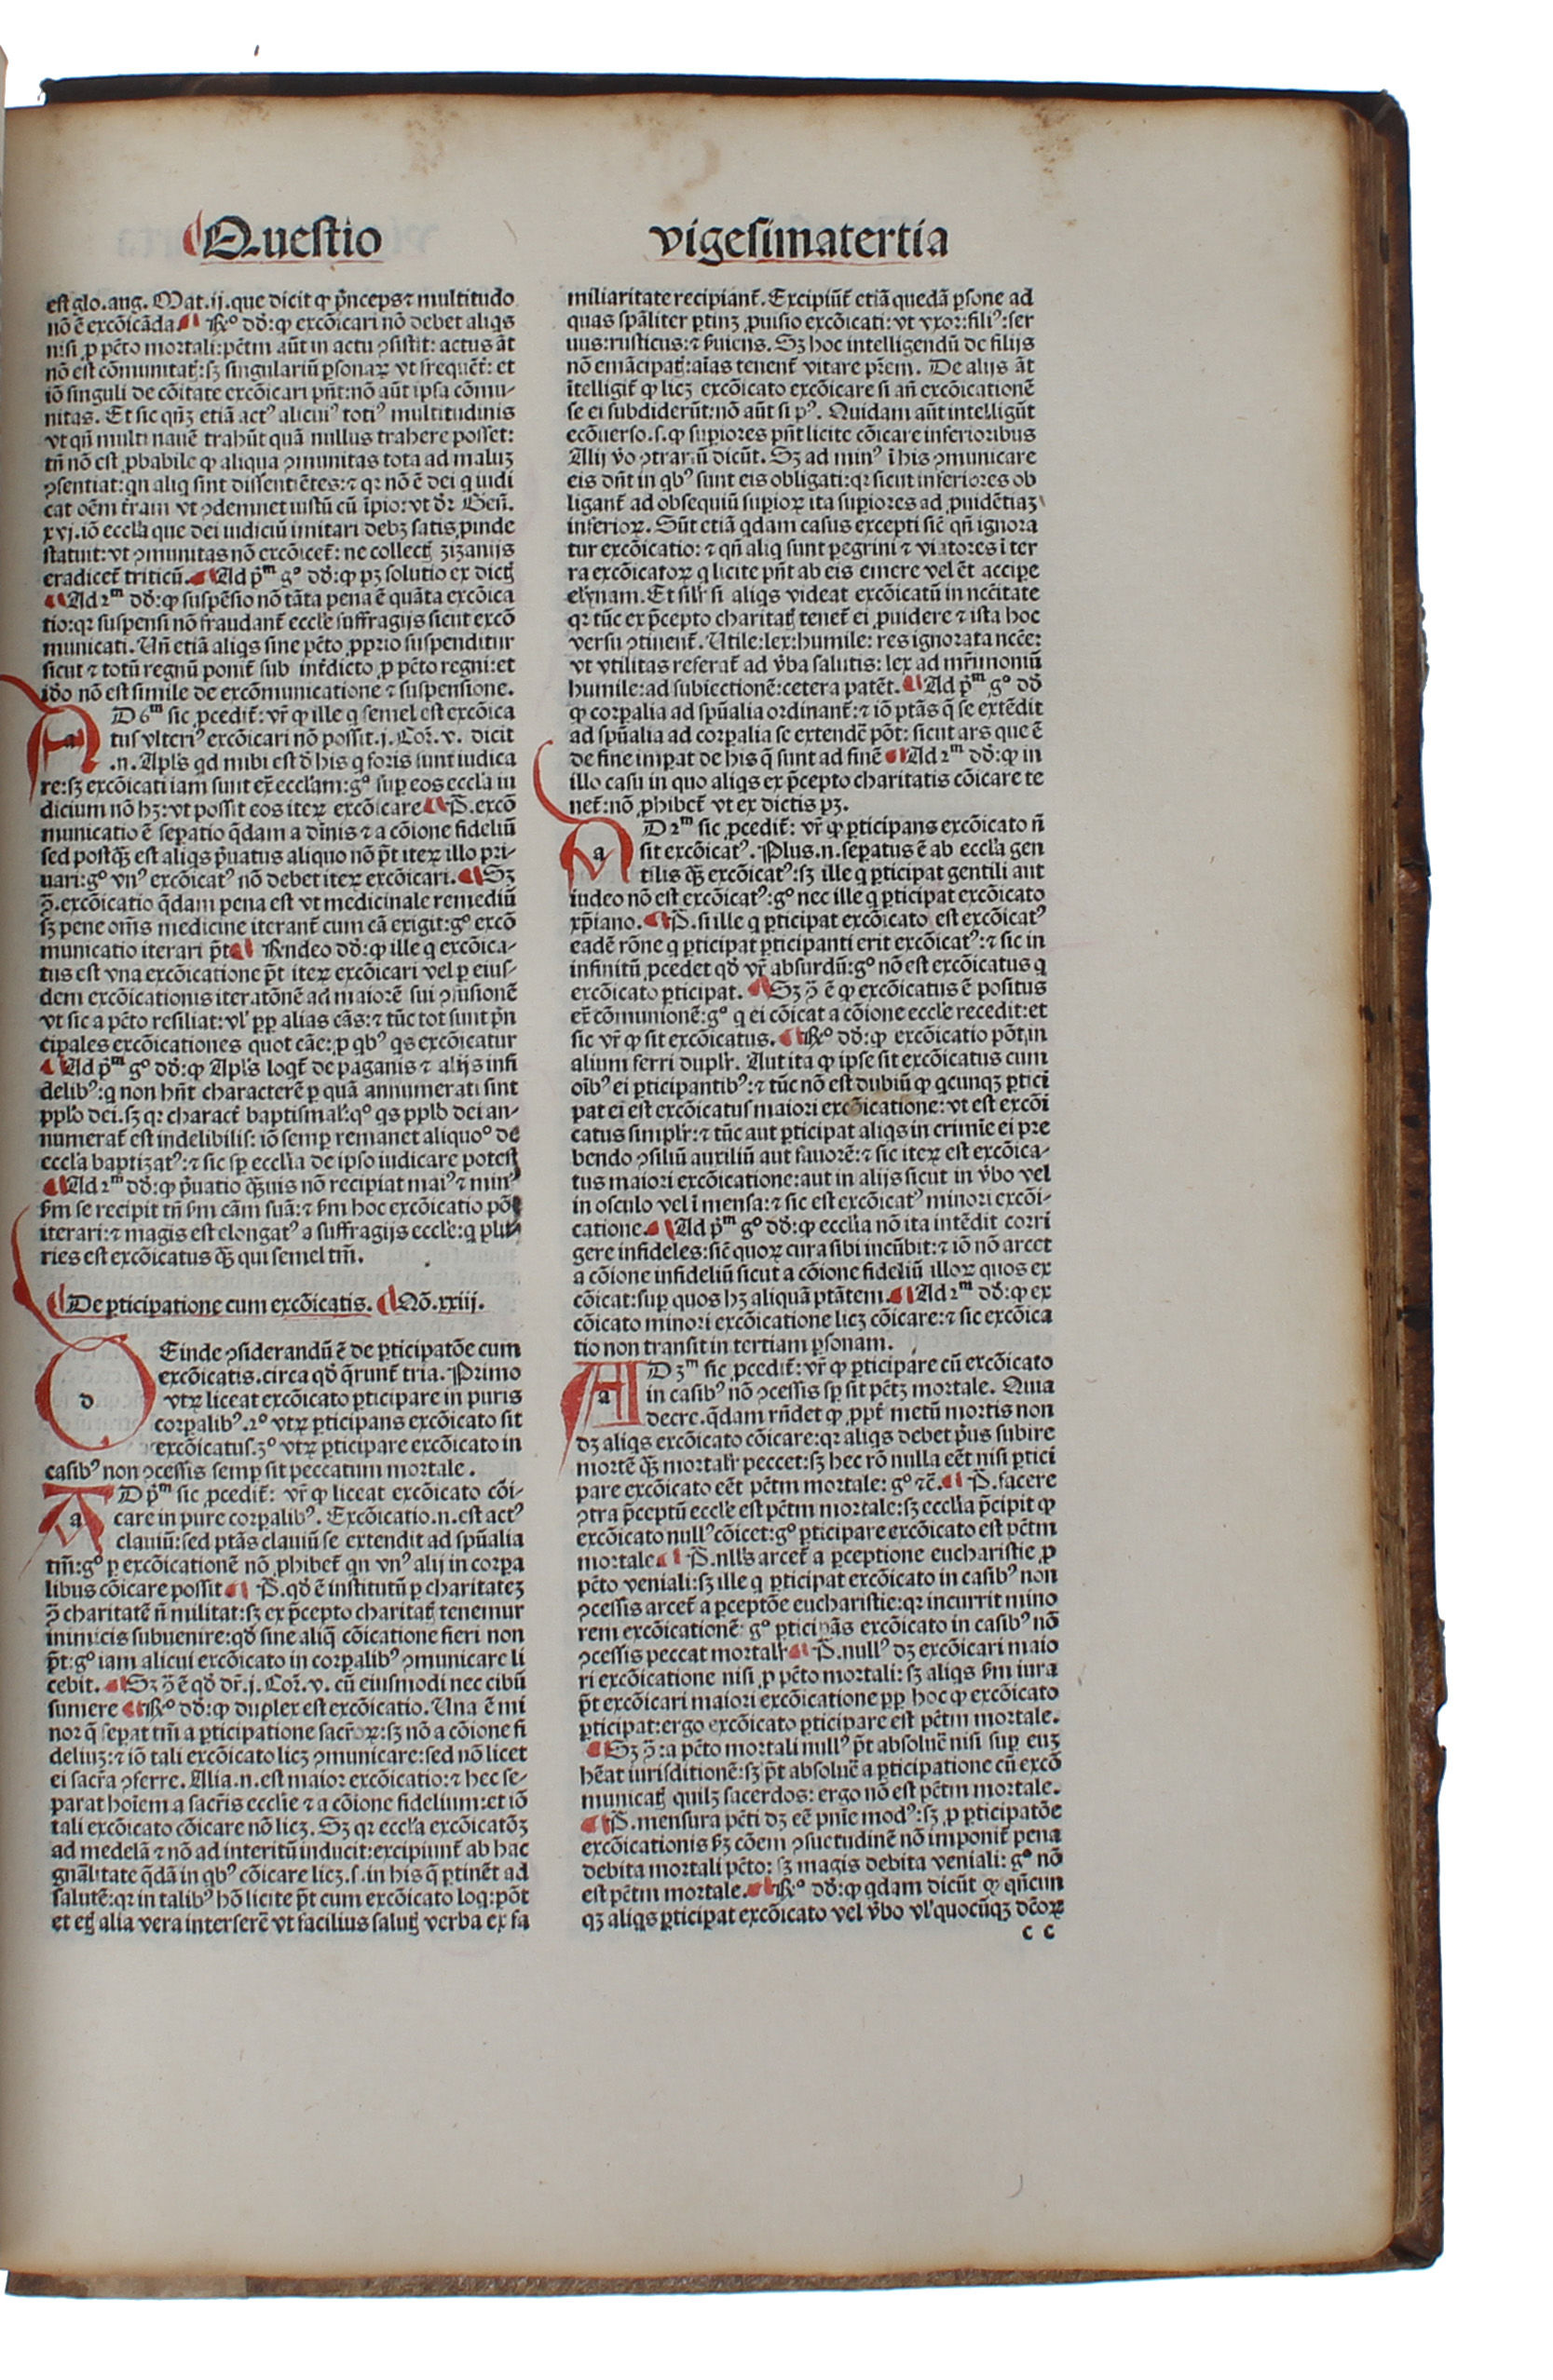 Questio
vigesimatertia
est glo. aug. Mat. ij. que dicit ꝙ p̄nceps ⁊ multitudo
nō ē excōicāda ¶ Rº dd̄: ꝙ excōicari nō debet aliqs
nisi ꝓ pctō mortali: pctm̄ aūt in actu ꝯsistit: actus āt
nō est cōmunitatꝭ: sꝫ singulariū ꝑsonaꝝ vt freq̄uēt̄: et
iō singuli de cōitate excōicari pn̄t: nō aūt ipsa cōmu-
nitas. Et sic qn̄ꝫ etiā actꝰ alicuiꝰ totiꝰ multitudinis
vt qn̄ multi nauē trahūt quā nullus trahere posset:
tn̄ nō est ꝓbabile ꝙ aliqua ꝯmunitas tota ad maluꝫ
ꝯsentiat: qn aliq sint dissentiētes: ⁊ qꝛ nō ē dei q iudi
cat oēm terram vt ꝯdemnet iustū cū īpio: vt dr̄ Gen̄.
xvj. iō eccl̄a que dei iudiciū imitari debꝫ satis ꝓuide
statuit: vt ꝯmunitas nō excōicet̄: ne collectꝭ zizanijs
eradicet̄ triticū. ¶ Ad pᵐ gº dd̄: ꝙ pꝫ solutio ex dictꝭ
¶ Ad 2ᵐ dd̄: ꝙ suspēsio nō tāta pena ē quāta excōica
tio: qꝛ suspensi nō fraudant̄ eccl̄e suffragijs sicut excō
municati. Un̄ etiā aliqs sine pctō ꝓprio suspenditur
sicut ⁊ totū regnū ponit̄ sub int̄dicto ꝓ pctō regni: et
idō nō est simile de excōmunicatione ⁊ suspensione.
a D 6ᵐ sic ꝓcedit̄: vr̄ ꝙ ille q semel est excōica
tus vlteriꝰ excōicari nō possit. j. Cor̄. v. dicit
.n. Apl̄s qd mihi est d̄ his q foris sunt iudica
re: sꝫ excōicati iam sunt ex̄ eccl̄am: gº suꝑ eos eccl̄a iu
dicium nō hꝫ: vt possit eos iteꝝ excōicare ¶ P̄. excō
municatio ē seꝑatio q̄dam a diuinis ⁊ a cōione fideliū
sed postq̄ꝫ est aliqs p̄uatus aliquo nō pt̄ iteꝝ illo pri-
uari: gº vnꝰ excōicatꝰ nō debet iteꝝ excōicari. ¶ Sꝫ
ꝯ̄. excōicatio q̄dam pena est vt medicinale remediū
sꝫ pene om̄s medicine iterant̄ cum cā exigit: gº excō
municatio iterari pt̄ ¶ Rn̄deo dd̄: ꝙ ille q excōica-
tus est vna excōicatione pt̄ iteꝝ excōicari vel ꝑ eius-
dem excōicationis iteratōnē ad maiorē sui ꝯfusionē
vt sic a pctō resiliat: vl̄ ꝓp̄ alias cās: ⁊ tūc tot sunt p̄n
cipales excōicationes quot cāe: ꝓ qbꝰ qs excōicatur
¶ Ad pᵐ gº dd̄: ꝙ Apl̄s loqt̄ de paganis ⁊ alijs infi
delibꝰ: q non hn̄t characterē ꝑ quā annumerati sint
ppl̄o dei. sꝫ qꝛ charact̄ baptismal̄: qº qs ppl̄o dei an-
numerat̄ est indelibilis: iō semꝑ remanet aliquoº de
eccl̄a baptizatꝰ: ⁊ sic sꝑ eccl̄ia de ipso iudicare potest
¶ Ad 2ᵐ dd̄: ꝙ p̄uatio q̄ꝫuis nō recipiat maiꝰ ⁊ minꝰ
ẜm se recipit tn̄ ẜm cām suā: ⁊ ẜm hoc excōicatio pōt
iterari: ⁊ magis est elongatꝰ a suffragijs eccl̄e: q plu-
ries est excōicatus q̄ꝫ qui semel tm̄.
¶ De ꝑticipatione cum excōicatis. ¶ Qō. xxiij.
d Einde ꝯsiderandū ē de ꝑticipatōe cum
excōicatis. circa qd̄ q̄runt̄ tria. Primo
vtꝝ liceat excōicato ꝑticipare in puris
corꝑalibꝰ. 2º vtꝝ ꝑticipans excōicato sit
excōicatus. 3º vtꝝ ꝑticipare excōicato in
casibꝰ non ꝯcessis semꝑ sit peccatum mortale.
a D pᵐ sic ꝓcedit̄: vr̄ ꝙ liceat excōicato cōi-
care in pure corꝑalibꝰ. Excōicatio .n. est actꝰ
clauiū: sed ptās clauiū se extendit ad spūalia
tm̄: gº ꝑ excōicationē nō ꝓhibet̄ qn vnꝰ alij in corꝑa
libus cōicare possit ¶ P̄. qd̄ ē institutū ꝑ charitateꝫ
ꝯ̄ charitatē n̄ militat: sꝫ ex p̄cepto charitatꝭ tenemur
inimicis subuenire: qd̄ sine aliq̄ cōicatione fieri non
pt̄: gº iam alicui excōicato in corꝑalibꝰ ꝯmunicare li
cebit. ¶ Sꝫ ꝯ̄ ē qd̄ dr̄. j. Cor̄. v. cū eiusmodi nec cibū
sumere ¶ Rº dd̄: ꝙ duplex est excōicatio. Una ē mi
nor q̄ seꝑat tm̄ a ꝑticipatione sacr̄oꝝ: sꝫ nō a cōione fi
deliuꝫ: ⁊ iō tali excōicato licꝫ ꝯmunicare: sed nō licet
ei sacr̄a ꝯferre. Alia .n. est maior excōicatio: ⁊ hec se-
parat hoīem a sacr̄is eccl̄ie ⁊ a cōione fidelium: et iō
tali excōicato cōicare nō licꝫ. Sꝫ qꝛ eccl̄a excōicatōꝫ
ad medelā ⁊ nō ad interitū inducit: excipiunt̄ ab hac
gn̄alitate q̄dā in qbꝰ cōicare licꝫ. s. in his q̄ ꝑtinēt ad
salutē: qꝛ in talibꝰ hō licite pt̄ cum excōicato loq: pōt
et etꝭ alia vera interserē vt facilius salutꝭ verba ex fa
miliaritate recipiant̄. Excipiūt̄ etiā quedā ꝑsone ad
quas spāliter ꝑtinꝫ ꝓuisio excōicati: vt vxor: filiꝰ: ser
uus: rusticus: ⁊ ẜuiens. Sꝫ hoc intelligendū de filijs
nō emācipatꝭ: aīas tenent̄ vitare pr̄em. De alijs āt
ītelligit̄ ꝙ licꝫ excōicato excōicare si an̄ excōicationē
se ei subdiderūt: nō aūt si pꝰ. Quidam aūt intelligūt
ecōuerso. s. ꝙ suꝑiores pn̄t licite cōicare inferioribus
Alij v̄o ꝯtrariū dicūt. Sꝫ ad minꝰ ī his ꝯmunicare
eis dn̄t in qbꝰ sunt eis obligati: qꝛ sicut inferiores ob
ligant̄ ad obsequiū suꝑioꝝ ita suꝑiores ad ꝓuidētiaꝫ
inferioꝝ. Sūt etiā qdam casus excepti sic̄ qn̄ ignora
tur excōicatio: ⁊ qn̄ aliq sunt ꝑegrini ⁊ viatores ī ter
ra excōicatoꝝ q licite pn̄t ab eis emere vel ēt accipe
elꝰynam. Et sil̄r si aliqs videat excōicatū in nc̄citate
qꝛ tūc ex p̄cepto charitatꝭ tenet̄ ei ꝓuidere ⁊ ista hoc
versu ꝯtinent̄. Utile: lex: humile: res ignorata nc̄ce:
vt vtilitas referat̄ ad v̄ba salutis: lex ad mr̄imoniū
humile: ad subiectionē: cetera patēt. ¶ Ad pᵐ gº dd̄
ꝙ corꝑalia ad spūalia ordinant̄: ⁊ iō ptās q̄ se extēdit
ad spūalia ad corꝑalia se extendē pōt: sicut ars que ē
de fine imꝑat de his q̄ sunt ad finē ¶ Ad 2ᵐ dd̄: ꝙ in
illo casu in quo aliqs ex p̄cepto charitatis cōicare te
net̄: nō ꝓhibet̄ vt ex dictis pꝫ.
a D 2ᵐ sic ꝓcedit̄: vr̄ ꝙ ꝑticipans excōicato n̄
sit excōicatꝰ. Plus .n. seꝑatus ē ab eccl̄a gen
tilis q̄ꝫ excōicatꝰ: sꝫ ille q ꝑticipat gentili aut
iudeo nō est excōicatꝰ: gº nec ille q ꝑticipat excōicato
xp̄iano. ¶ P̄. si ille q ꝑticipat excōicato est excōicatꝰ
eadē rōne q ꝑticipat ꝑticipanti erit excōicatꝰ: ⁊ sic in
infinitū ꝓcedet qd̄ vr̄ absurdū: gº nō est excōicatus q
excōicato ꝑticipat. ¶ Sꝫ ꝯ̄ ē ꝙ excōicatus ē positus
ex̄ cōmunionē: gº q ei cōicat a cōione eccl̄e recedit: et
sic vr̄ ꝙ sit excōicatus. ¶ Rº dd̄: ꝙ excōicatio pōt in
alium ferri dupl̄r. Aut ita ꝙ ipse sit excōicatus cum
oībꝰ ei ꝑticipantibꝰ: ⁊ tūc nō est dubiū ꝙ qcunqꝫ ꝑtici
pat ei est excōicatus maiori excōicatione: vt est excōi
catus simpl̄r: ⁊ tūc aut ꝑticipat aliqs in crimīe ei pre
bendo ꝯsiliū auxiliū aut fauorē: ⁊ sic iteꝝ est excōica-
tus maiori excōicatione: aut in alijs sicut in v̄bo vel
in osculo vel ī mensa: ⁊ sic est excōicatꝰ minori excōi-
catione. ¶ Ad pᵐ gº dd̄: ꝙ eccl̄ia nō ita intēdit corri
gere infideles: sic̄ quoꝝ cura sibi incūbit: ⁊ iō nō arcet
a cōione infideliū sicut a cōione fideliū illoꝝ quos ex
cōicat: suꝑ quos hꝫ aliquā ptātem. ¶ Ad 2ᵐ dd̄: ꝙ ex
cōicato minori excōicatione licꝫ cōicare: ⁊ sic excōica
tio non transit in tertiam ꝑsonam.
a D 3ᵐ sic ꝓcedit̄: vr̄ ꝙ ꝑticipare cū excōicato
in casibꝰ nō ꝯcessis sꝑ sit pctꝫ mortale. Quia
decre. q̄dam rn̄det ꝙ ꝓpt̄ metū mortis non
dꝫ aliqs excōicato cōicare: qꝛ aliqs debet pꝰus subire
mortē q̄ꝫ mortal̄r peccet: sꝫ hec rō nulla eēt nisi ꝑtici
pare excōicato eēt pctm̄ mortale: gº ⁊c̄. ¶ P̄. facere
ꝯtra p̄ceptū eccl̄e est pctm̄ mortale: sꝫ eccl̄ia p̄cipit ꝙ
excōicato nullꝰ cōicet: gº ꝑticipare excōicato est pctm̄
mortale ¶ P̄. nll̄s arcet̄ a ꝑceptione eucharistie ꝓ
pctō veniali: sꝫ ille q ꝑticipat excōicato in casibꝰ non
ꝯcessis arcet̄ a ꝑceptōe eucharistie: qꝛ incurrit mino
rem excōicationē: gº ꝑticipās excōicato in casibꝰ nō
ꝯcessis peccat mortal̄r ¶ P̄. nullꝰ dꝫ excōicari maio
ri excōicatione nisi ꝓ pctō mortali: sꝫ aliqs ẜm iura
pt̄ excōicari maiori excōicatione ꝓp̄ hoc ꝙ excōicato
ꝑticipat: ergo excōicato ꝑticipare est pctm̄ mortale.
¶ Sꝫ ꝯ̄: a pctō mortali nullꝰ pt̄ absoluē nisi suꝑ euꝫ
hēat iurisditionē: sꝫ pt̄ absoluē a ꝑticipatione cū excō
municatꝭ quilꝫ sacerdos: ergo nō est pctm̄ mortale.
¶ P̄. mensura pcti dꝫ eē pn̄ie modꝰ: sꝫ ꝓ ꝑticipatōe
excōicationis ẜꝫ cōem ꝯsuetudinē nō imponit̄ pena
debita mortali pctō: sꝫ magis debita veniali: gº nō
est pctm̄ mortale. ¶ Rº dd̄: ꝙ qdam dicūt ꝙ qn̄cun
qꝫ aliqs ꝑticipat excōicato vel v̄bo vl̄ quocūqꝫ dc̄oꝝ
c c